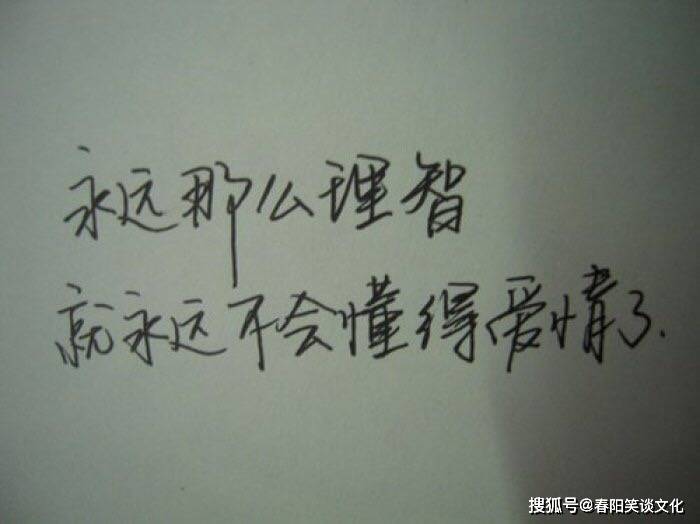 永远那么理智
就永远不会懂得爱情了.
搜狐号@春阳笑谈文化